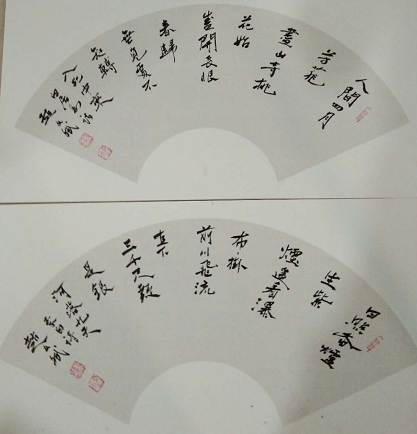 人間四月
芳菲
盡山寺桃
花始
盛開長恨
春歸
無覓處不
知轉
入此中來
白居易詩
日照香爐
生紫
煙遥看瀑
布掛
前川飛流
直下
三千尺疑
是銀
河落九天
李白詩